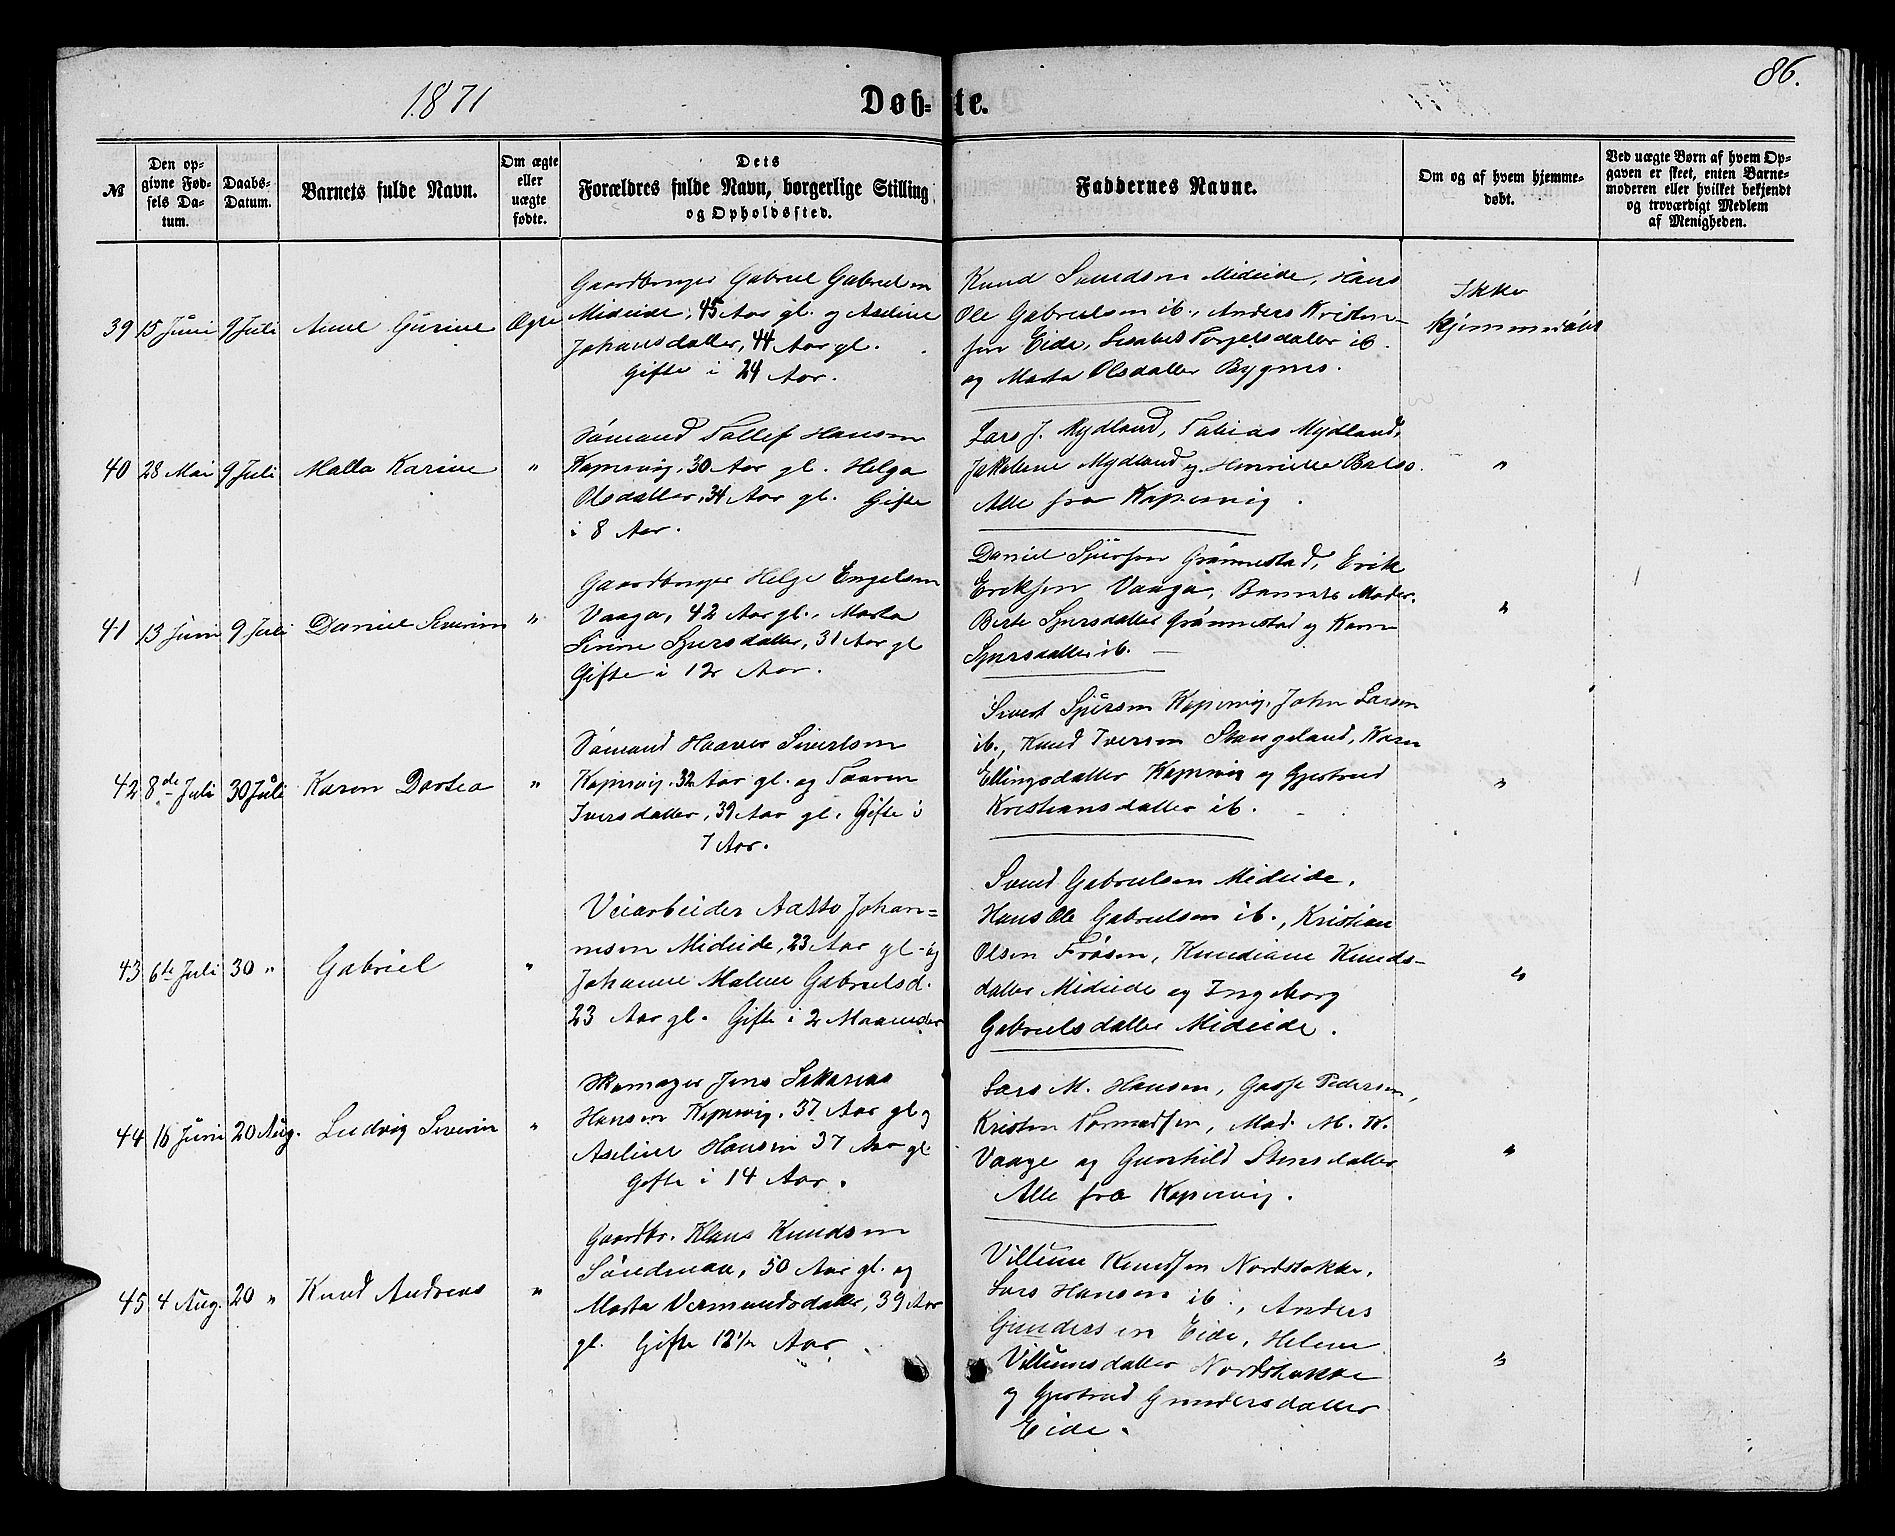 1871
Døb-
te.
86.
№
Den op-
givne Fød-
sels Da-
tum.
Daabs-
Datum.
Barnets fulde Navn.
Om ægte
eller
uægte
fødte.
Dets
Forældres fulde Navn, borgerlige Stilling
og Opholdssted.
Faddernes Navne.
Om og af hvem hjemme-
døbt.
Ved uægte Børn af hvem Op-
gaven er skeet, enten Barne-
moderen eller hvilket bekjendt
og troværdigt Medlem
af Menigheden.
39 15 Juni 9 Juli Anne Gurine Ægte
Gaardbruger Gabriel Gabrielsen
Mideide, 45 Aar gl. og Aseline
Johansdatter, 44 Aar gl.
Gifte i 24 Aar.
Knud Svendsen Mideide, Hans
Ole Gabrielsen ib., Anders Kristen-
sen Eide, Lisabet Torgelsdatter ib.
og Marta Olsdatter Bygnes.
Ikke
hjemmedøbt
40 28 Mai 9 Juli Malla Karine "
Sømand Tallef Hansen
Kopervig, 30 Aar gl. Helga
Olsdatter, 34 Aar gl. Gifte
i 8 Aar.
Lars J. Mydland, Tobias Mydland,
Jakobine Mydland og Henriette
Alle fra Kopervig.
"
41 13 Juni 9 Juli Daniel Severin "
Gaardbruger Helge Engelsen
Vaaga, 42 Aar gl., Marta
Sirine Sjursdatter, 31 Aar gl
Gifte i 12 Aar.
Daniel Sjursen Grønnestad, Erik
Eriksen Vaaga, Barnets Moder.
Berte Sjursdatter Grønnestad og Karen
Sjursdatter ib.
"
42 8de Juli 30 Juli Karen Dortea "
Sømand Haaver Sivertsen
Kopervig, 32 Aar gl. og Taaren
Iversdatter, 39 Aar gl. Gifte i
7 Aar.
Sivert Sjursen Kopervig, John Larsen
ib., Knud Iversen Stangeland, Karen
Ellingsdatter Kopervig og Gjertrud
Kristiansdatter ib.
"
43 6te Juli 30 " Gabriel "
Veiarbeider Aatto Johan-
nesen Mideide, 23 Aar gl. og
Johanne Malene Gabrielsd.
23 Aar gl. Gifte i 2 Maaneder
Svend Gabrielsen Mideide.
Hans Ole Gabrielsen ib., Kristian
Olsen Frøsen, Knudiane Knuds-
datter Mideide og Ingeborg
Gabrielsdatter Mideide.
"
44 16 Juni 20 Aug. Ludvig Severin "
Skomager Jens Sakarias
Hansen Kopervig, 37 Aar gl. og
Aseline Hansen 37 Aar gl
Gifte i 14 Aar.
Lars M. Hansen, Pedersen,
Kristen Tormodsen, Mad. M. K.
Vaage og Gunhild Stensdatter
Alle fra Kopervig.
"
45 4 Aug. 20 " Knud Andreas "
Gaardbr. Klaus Knudsen
Søndenaa, 50 Aar gl. og
Marta Vermundsdatter, 39 Aar
gl. Gifte 12 1/2 Aar
Villum Knudsen Nordstokke,
Lars Hansen ib., Anders
Gundersen Eide, Helene
Villumsdatter Nordstokke
og Gjertrud Gundersdatter
Eide.
"